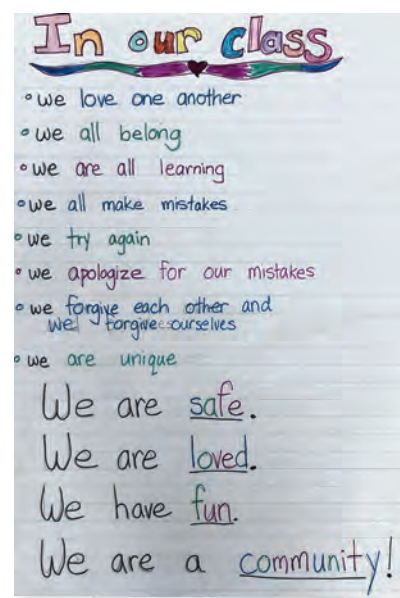 In our class
• we love one another
• we all belong
• we are all learning
• we all make mistakes
• we try again
• we apologize for our mistakes
• we forgive each other and
we forgive ourselves
• we are unique
We are safe.
We are loved.
We have fun.
We are a community!